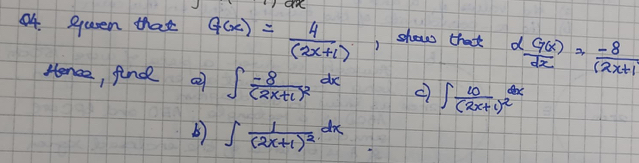 Q4. Given that G(x) = 4/(2x+1), show that d G(x)/dx = -8/(2x+1)
Hence, find a) ∫ -8/(2x+1)² dx c) ∫ 10/(2x+1)² dx
b) ∫ 1/(2x+1)² dx.